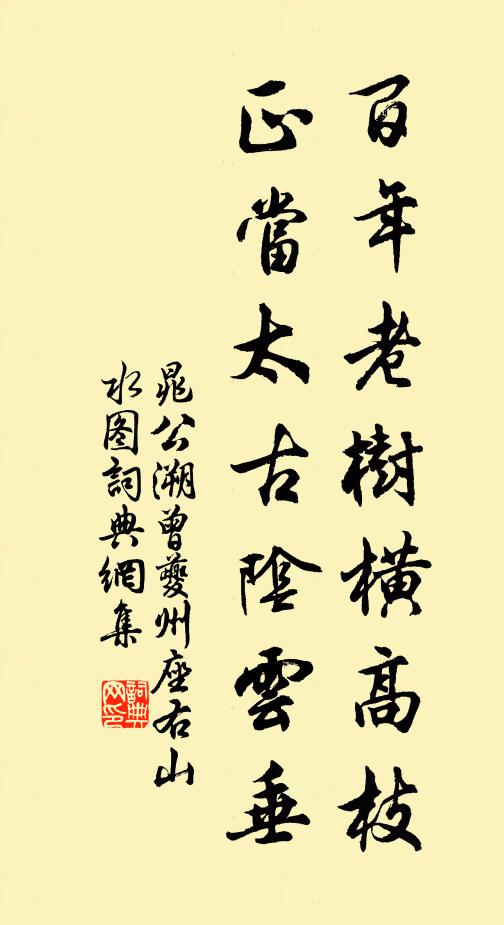 百年老樹橫高枝
正當太古陰雲垂
晁公溯曾夔州座右山
水图詞典網集
詞典網印